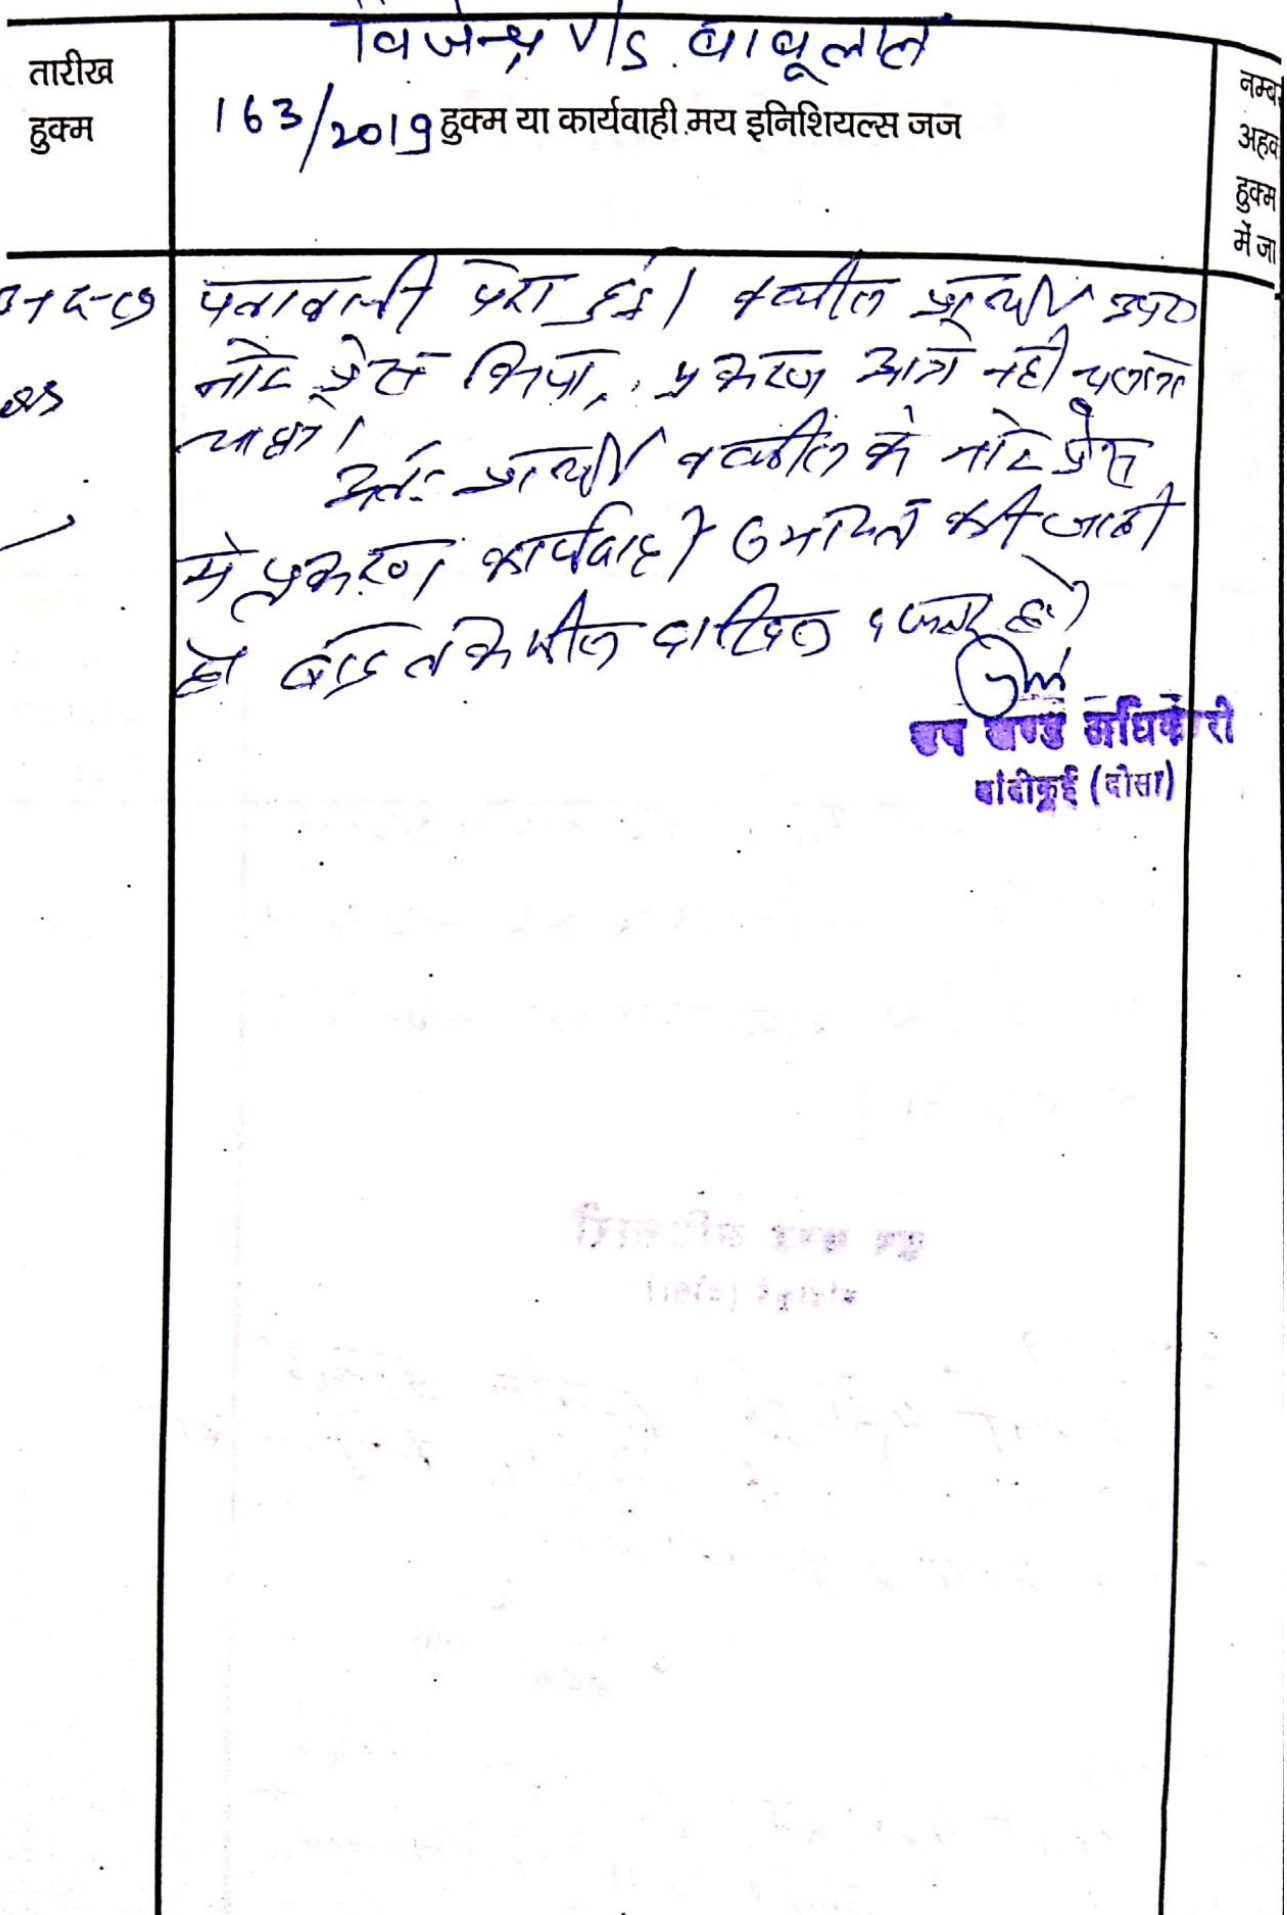 विजेन्द्र V/S बाबूलाल
तारीख
हुक्म
163/2019 हुक्म या कार्यवाही मय इनिशियल्स जज
नम्बर
अहक
हुक्म
में जा
पत्रावली पेश हुई। वकील प्रार्थी उप०
नोट प्रेस किया, प्रकरण आगे नही चलाना
चाहता।
अतः प्रार्थी वकील के नोट प्रेस
मे प्रकरण कार्यवाही की जाती
है बाद तकमील दाखिल दफ्तर हो।
उप खण्ड अधिकारी
बांदीकुई (दौसा)